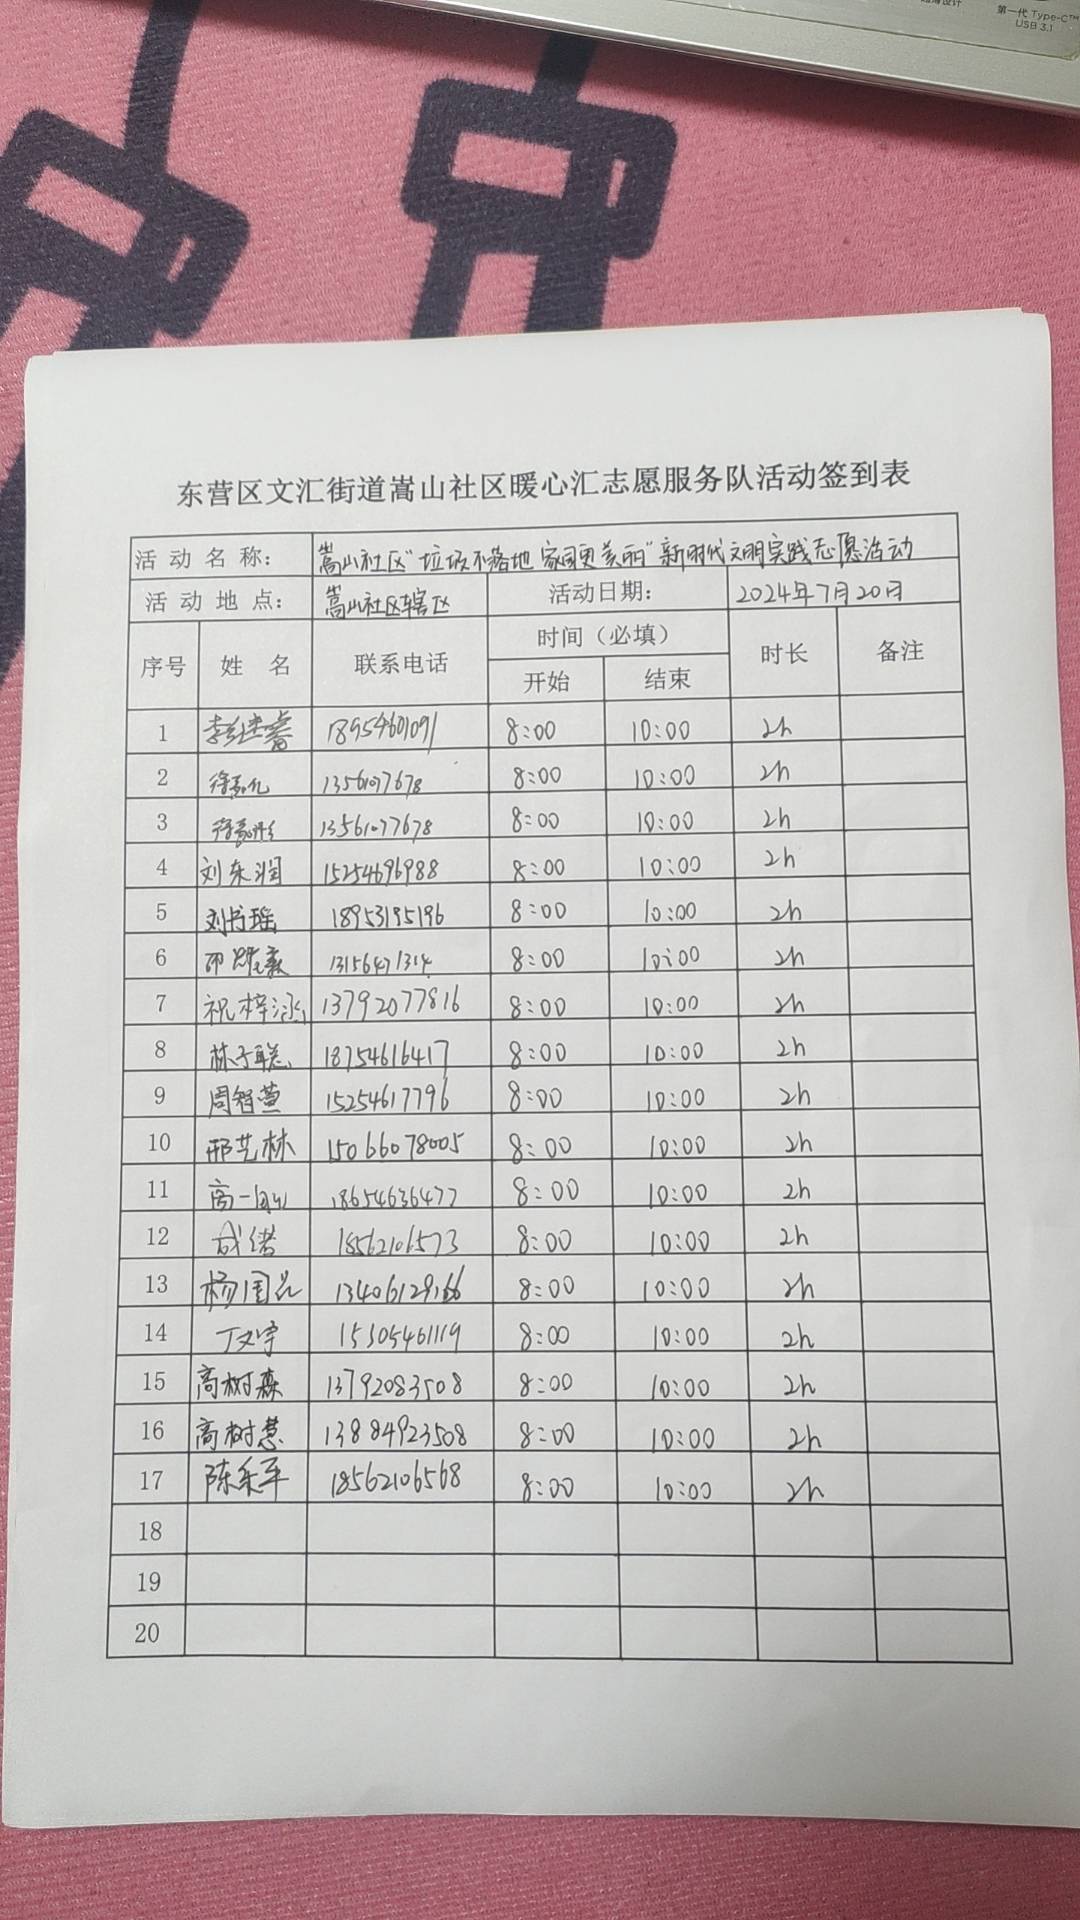 第一代 Type-C™
USB 3.1
东营区文汇街道嵩山社区暖心汇志愿服务队活动签到表
活动名称： 嵩山社区"垃圾不落地 家园更美丽"新时代文明实践志愿活动
活动地点： 嵩山社区辖区 活动日期： 2024年7月20日
序号 姓名 联系电话 时间（必填） 时长 备注
开始 结束
1 李继睿 18954601091 8:00 10:00 2h
2 13561077678 8:00 10:00 2h
3 13561077678 8:00 10:00 2h
4 刘东润 15254696988 8:00 10:00 2h
5 刘书瑶 18953195196 8:00 10:00 2h
6 13156471314 8:00 10:00 2h
7 祝梓泳 13792077816 8:00 10:00 2h
8 林子聪 18754616417 8:00 10:00 2h
9 周智萱 15254617796 8:00 10:00 2h
10 邢艺林 15066078005 8:00 10:00 2h
11 18654636477 8:00 10:00 2h
12 成诺 18562106573 8:00 10:00 2h
13 13406129166 8:00 10:00 2h
14 丁文宇 15305461119 8:00 10:00 2h
15 高树森 13792083508 8:00 10:00 2h
16 高树慧 13884923508 8:00 10:00 2h
17 18562106568 8:00 10:00 2h
18
19
20